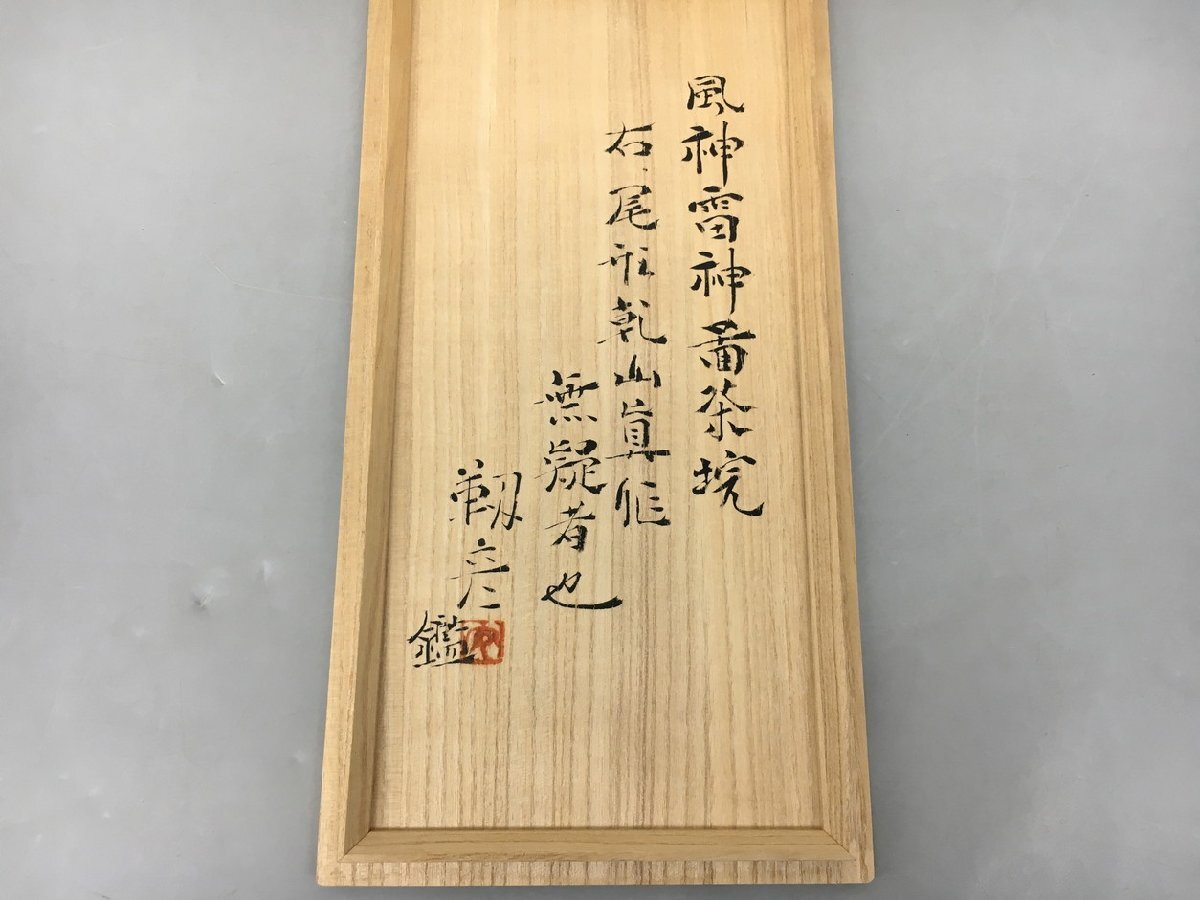 風神雷神啚茶埦
右、尾形乾山眞作
無疑者也
靱彦
鑑